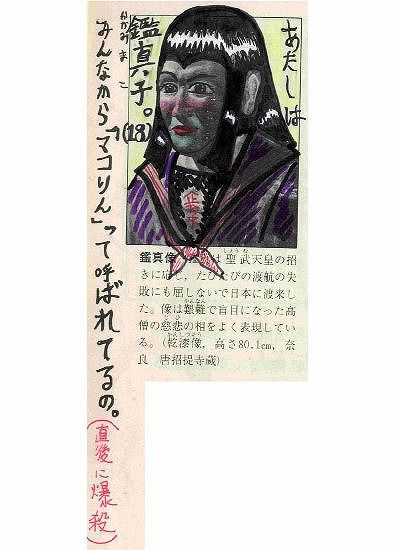 あたしは
鑑真子。
かがみ まこ
(18)
みんなから「マコりん」って呼ばれてるの。
(直後に爆殺)
鑑真像
は聖武天皇の招
しょうむ
きに応じ，たびたびの渡航の失
敗にも屈しないで日本に渡来し
た。像は艱難で盲目になった高
かんなん
僧の慈悲の相をよく表現してい
る。(乾漆像，高さ80.1cm，奈
かんしつぞう
良 唐招提寺蔵)